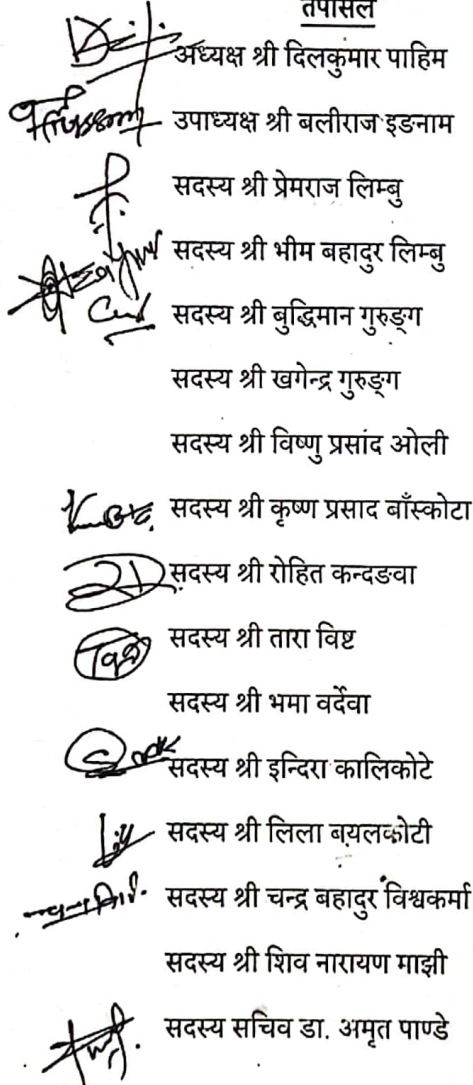 तपासिल
अध्यक्ष श्री दिलकुमार पाहिम
उपाध्यक्ष श्री बलीराज इङनाम
सदस्य श्री प्रेमराज लिम्बु
सदस्य श्री भीम बहादुर लिम्बु
सदस्य श्री बुद्धिमान गुरुङ्ग
सदस्य श्री खगेन्द्र गुरुङ्ग
सदस्य श्री विष्णु प्रसांद ओली
सदस्य श्री कृष्ण प्रसाद बाँस्कोटा
सदस्य श्री रोहित कन्दङवा
सदस्य श्री तारा विष्ट
सदस्य श्री भमा वर्देवा
सदस्य श्री इन्दिरा कालिकोटे
सदस्य श्री लिला बयलकोटी
सदस्य श्री चन्द्र बहादुर विश्वकर्मा
सदस्य श्री शिव नारायण माझी
सदस्य सचिव डा. अमृत पाण्डे